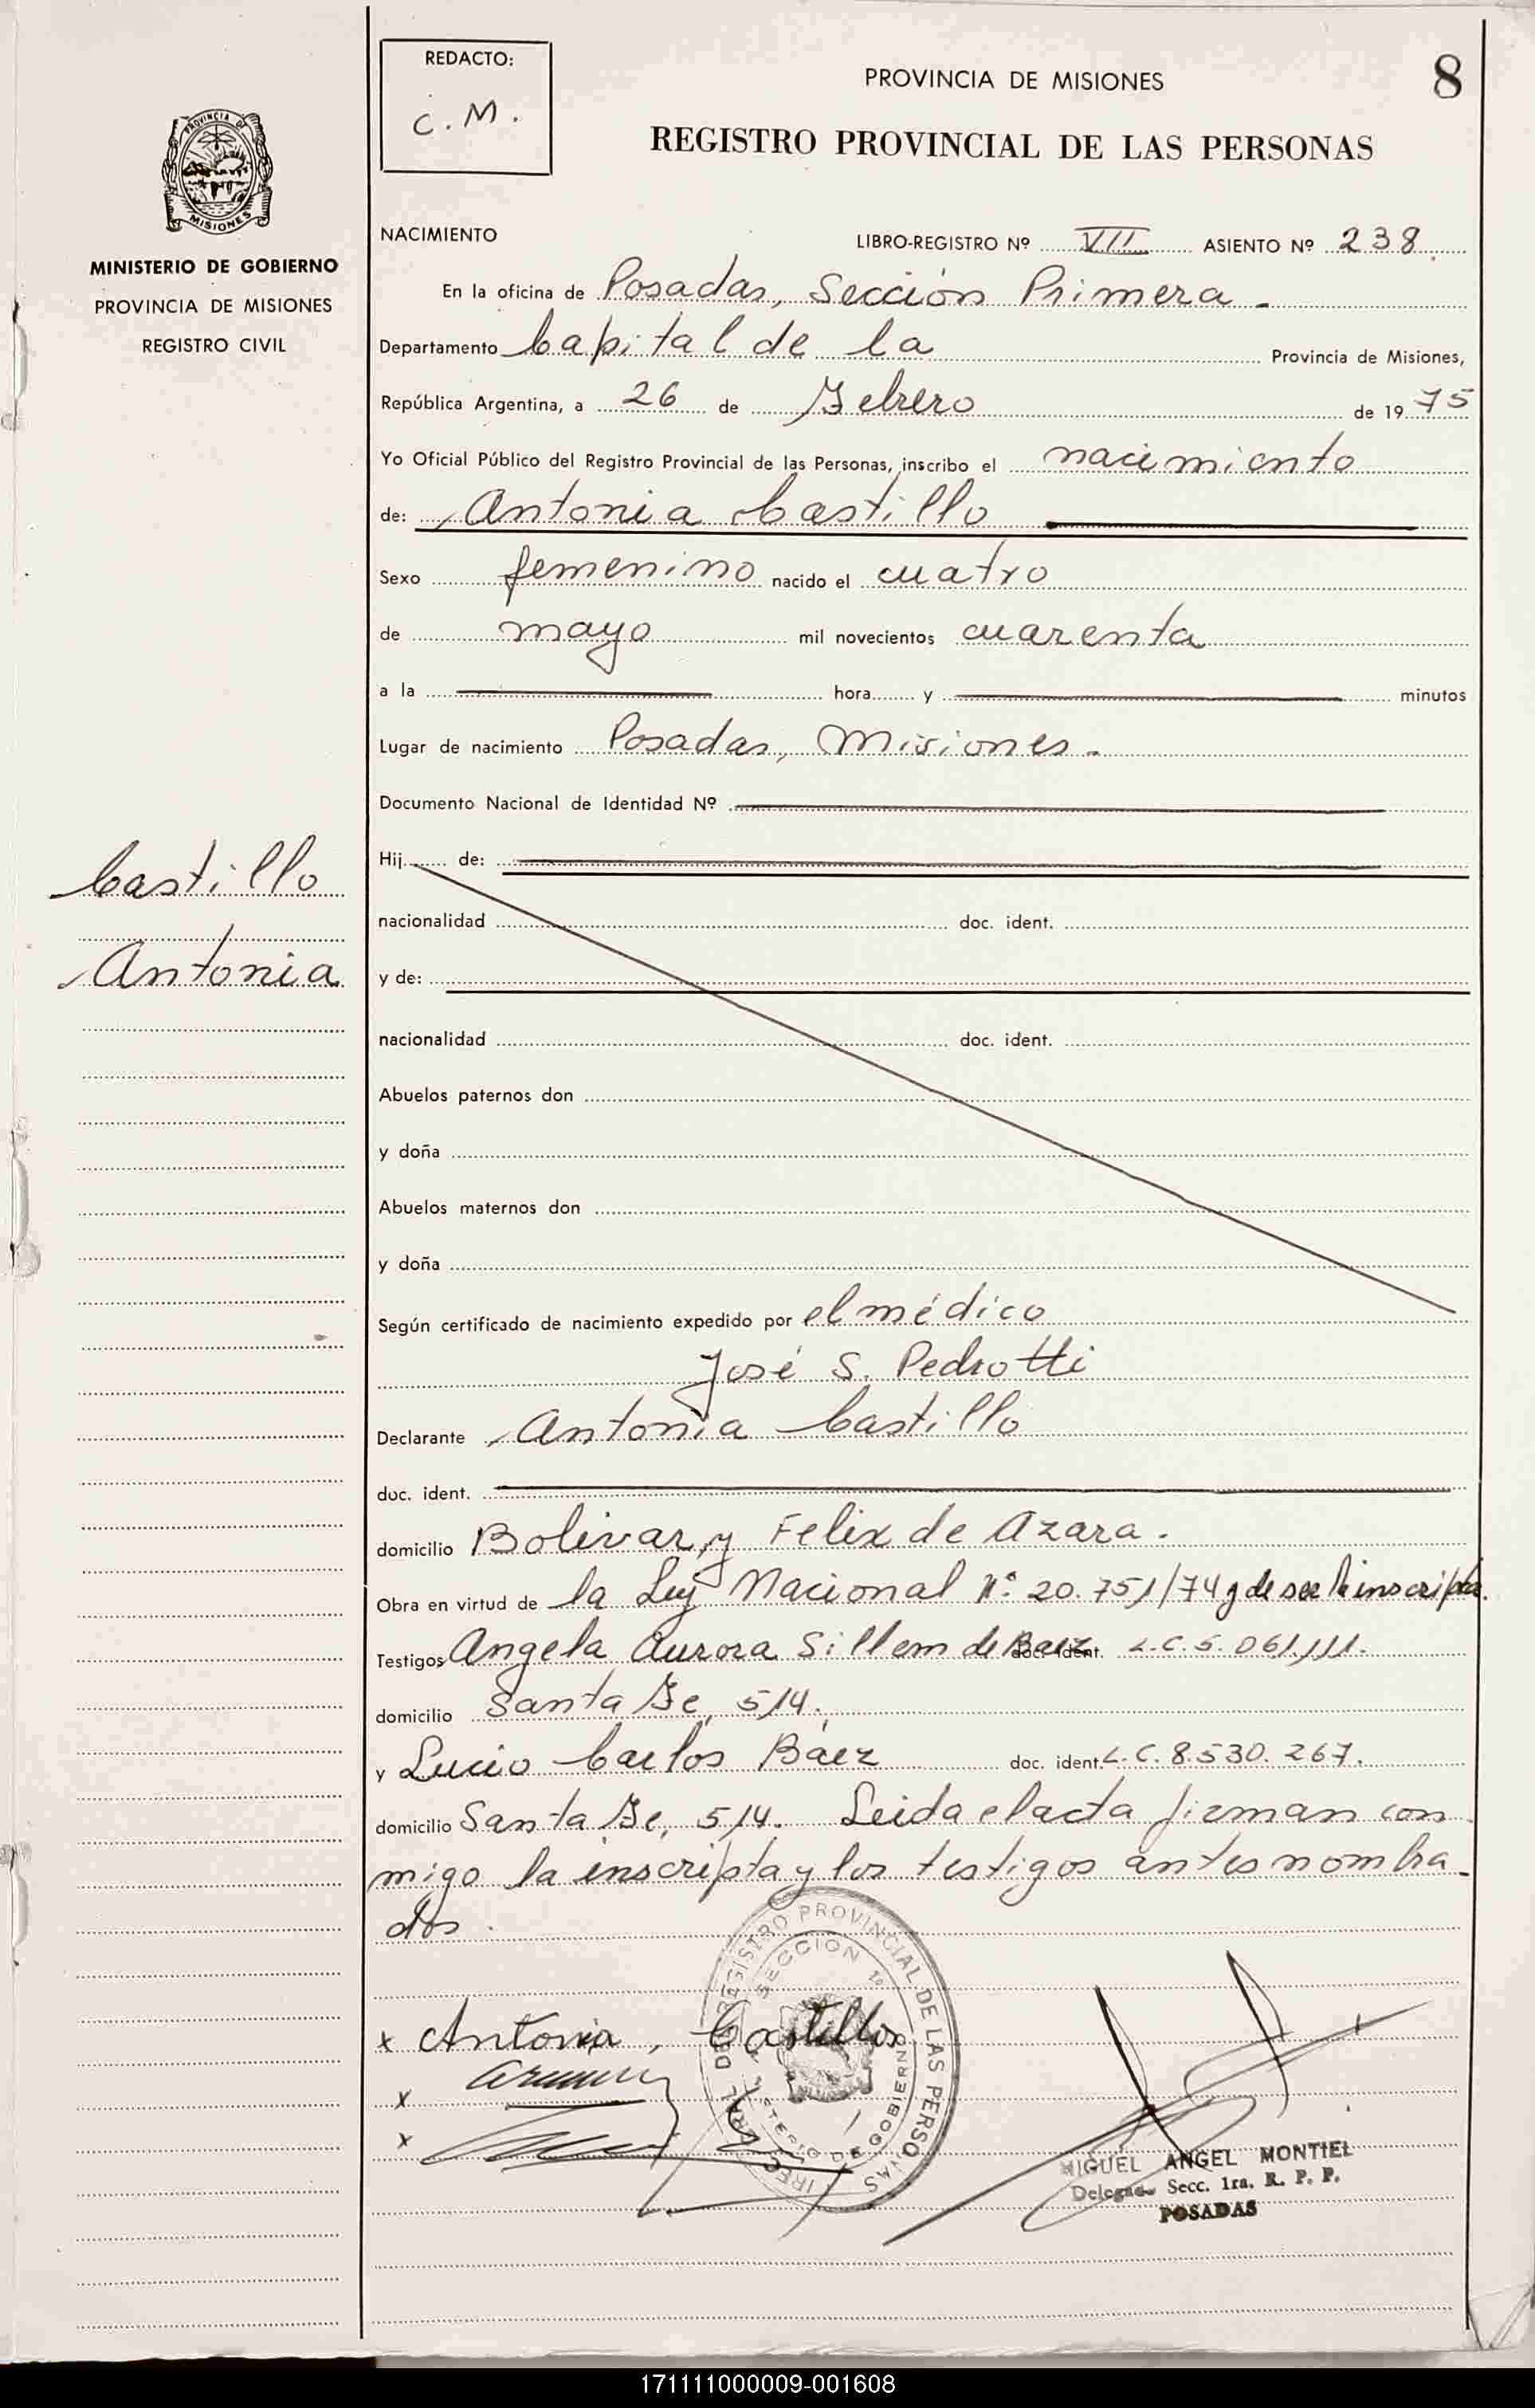 REDACTO:
C. M.
PROVINCIA DE MISIONES
8
REGISTRO PROVINCIAL DE LAS PERSONAS
PROVINCIA DE
MISIONES
MINISTERIO DE GOBIERNO
PROVINCIA DE MISIONES
REGISTRO CIVIL
NACIMIENTO
LIBRO-REGISTRO Nº VII ASIENTO Nº 238
En la oficina de Posadas, Sección Primera -
Departamento Capital de la Provincia de Misiones,
República Argentina, a 26 de Febrero de 19 75
Yo Oficial Público del Registro Provincial de las Personas, inscribo el nacimiento
de: Antonia Castillo
Sexo femenino nacido el cuatro
de mayo mil novecientos cuarenta
a la hora y minutos
Lugar de nacimiento Posadas, Misiones -
Documento Nacional de Identidad Nº
Castillo
Antonia
Hij de:
nacionalidad doc. ident.
y de:
nacionalidad doc. ident.
Abuelos paternos don
y doña
Abuelos maternos don
y doña
Según certificado de nacimiento expedido por el médico
José S. Pedrotti
Declarante Antonia Castillo
doc. ident.
domicilio Bolivar y Felix de Azara.
Obra en virtud de la Ley Nacional Nº: 20.751/74 y de ser la inscripta.
Testigos Angela Aurora Sillem de Baez doc. ident. L.C. 5.061.111.
domicilio Santa Fe, 514,
y Lucio Carlos Báez doc. ident. L.C. 8.530.267.
domicilio Santa Fe, 514. Leida el acta firman con
migo la inscripta y los testigos antes nombra-
dos.
REGISTRO PROVINCIAL DE LAS PERSONAS
SECCION 1ª
DE GOBIERNO
x Antonia, Castillo
x
x
MIGUEL ANGEL MONTIEL
Delegado Secc. 1ra. R. P. P.
POSADAS
171111000009-001608